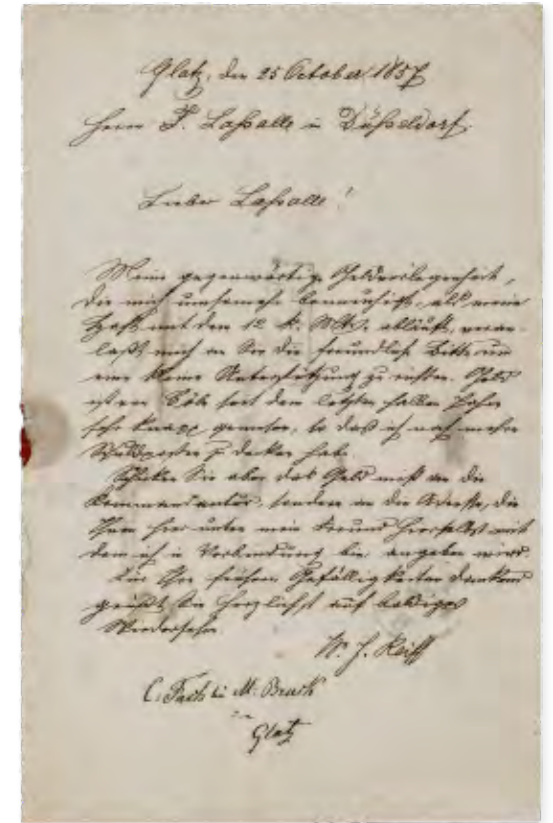 Glatz, den 25 October 1857
Herrn F. Laßalle in Düßeldorf.
Lieber Laßalle!
Meine gegenwärtige Geldverlegenheit,
die mich umsomehr beunruhigt, als meine
Haft mit dem 12 k. Mts. abläuft, veran-
laßt mich an Sie die freundliche Bitte um
eine kleine Unterstützung zu richten. Geld
ist seit dem letzten halben Jahre
sehr knapp gewesen, so daß ich noch mehre
Schuldposten z. decken habe.
Schicken Sie aber das Geld nicht an die
Kommandantur, sondern an die Adresse, die
Ihnen hier unten mein Freund hierselbst mit
dem ich in Verbindung bin angeben wird.
Für Ihre frühern Gefälligkeiten dankend
grüßt Sie herzlichst auf baldiges
Wiedersehn
W. J. Reiff
bei M. Bruck
in
Glatz